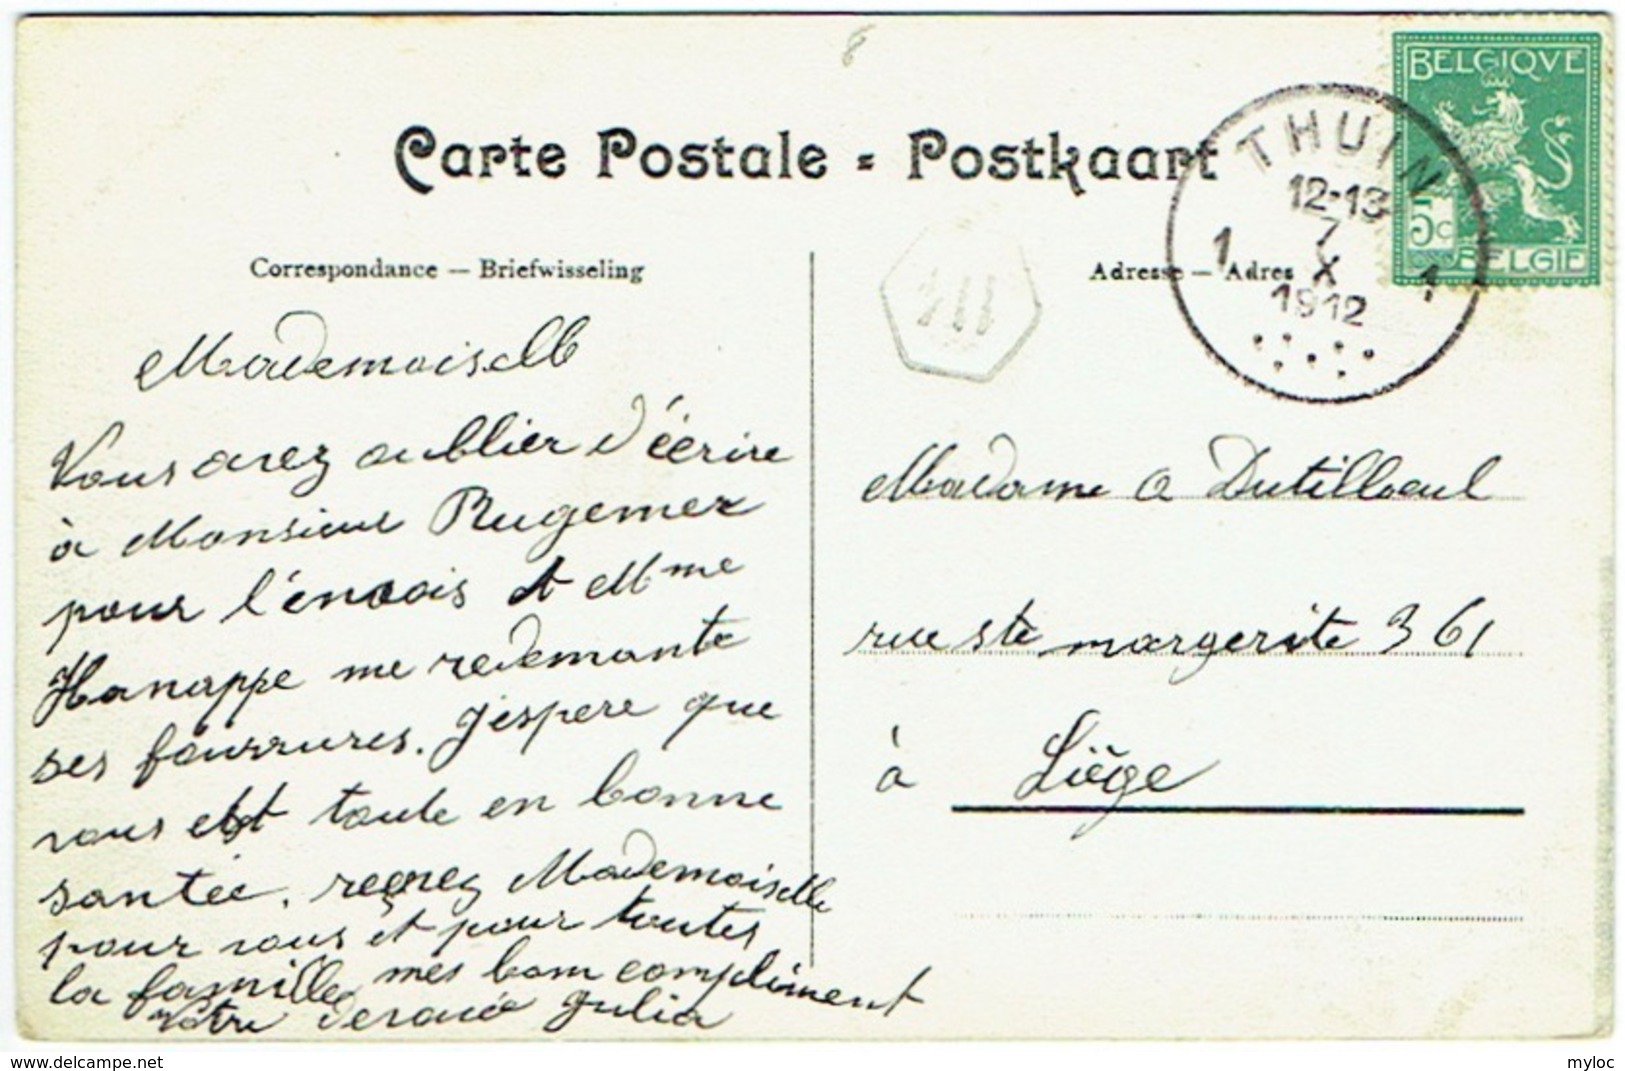 Carte Postale = Postkaart
Correspondance — Briefwisseling
Adresse — Adres
BELGIQVE
5c
BELGIE
THUIN
12-13
7
X
1912
1 1
8
Mademoiselle
Vous avez oublier d'écrire
à Monsieur Rugemer
pour l'envois et Mme
Hanappe me redemante
ses fourrures. J'espere que
vous etst toute en bonne
santée. reçevez Mademoiselle
pour vous et pour toutes
la famille mes bom compliment
Votre devoué Julia
Madame A Dutilloeul
rue Ste margerite 361
à Liège
myloc